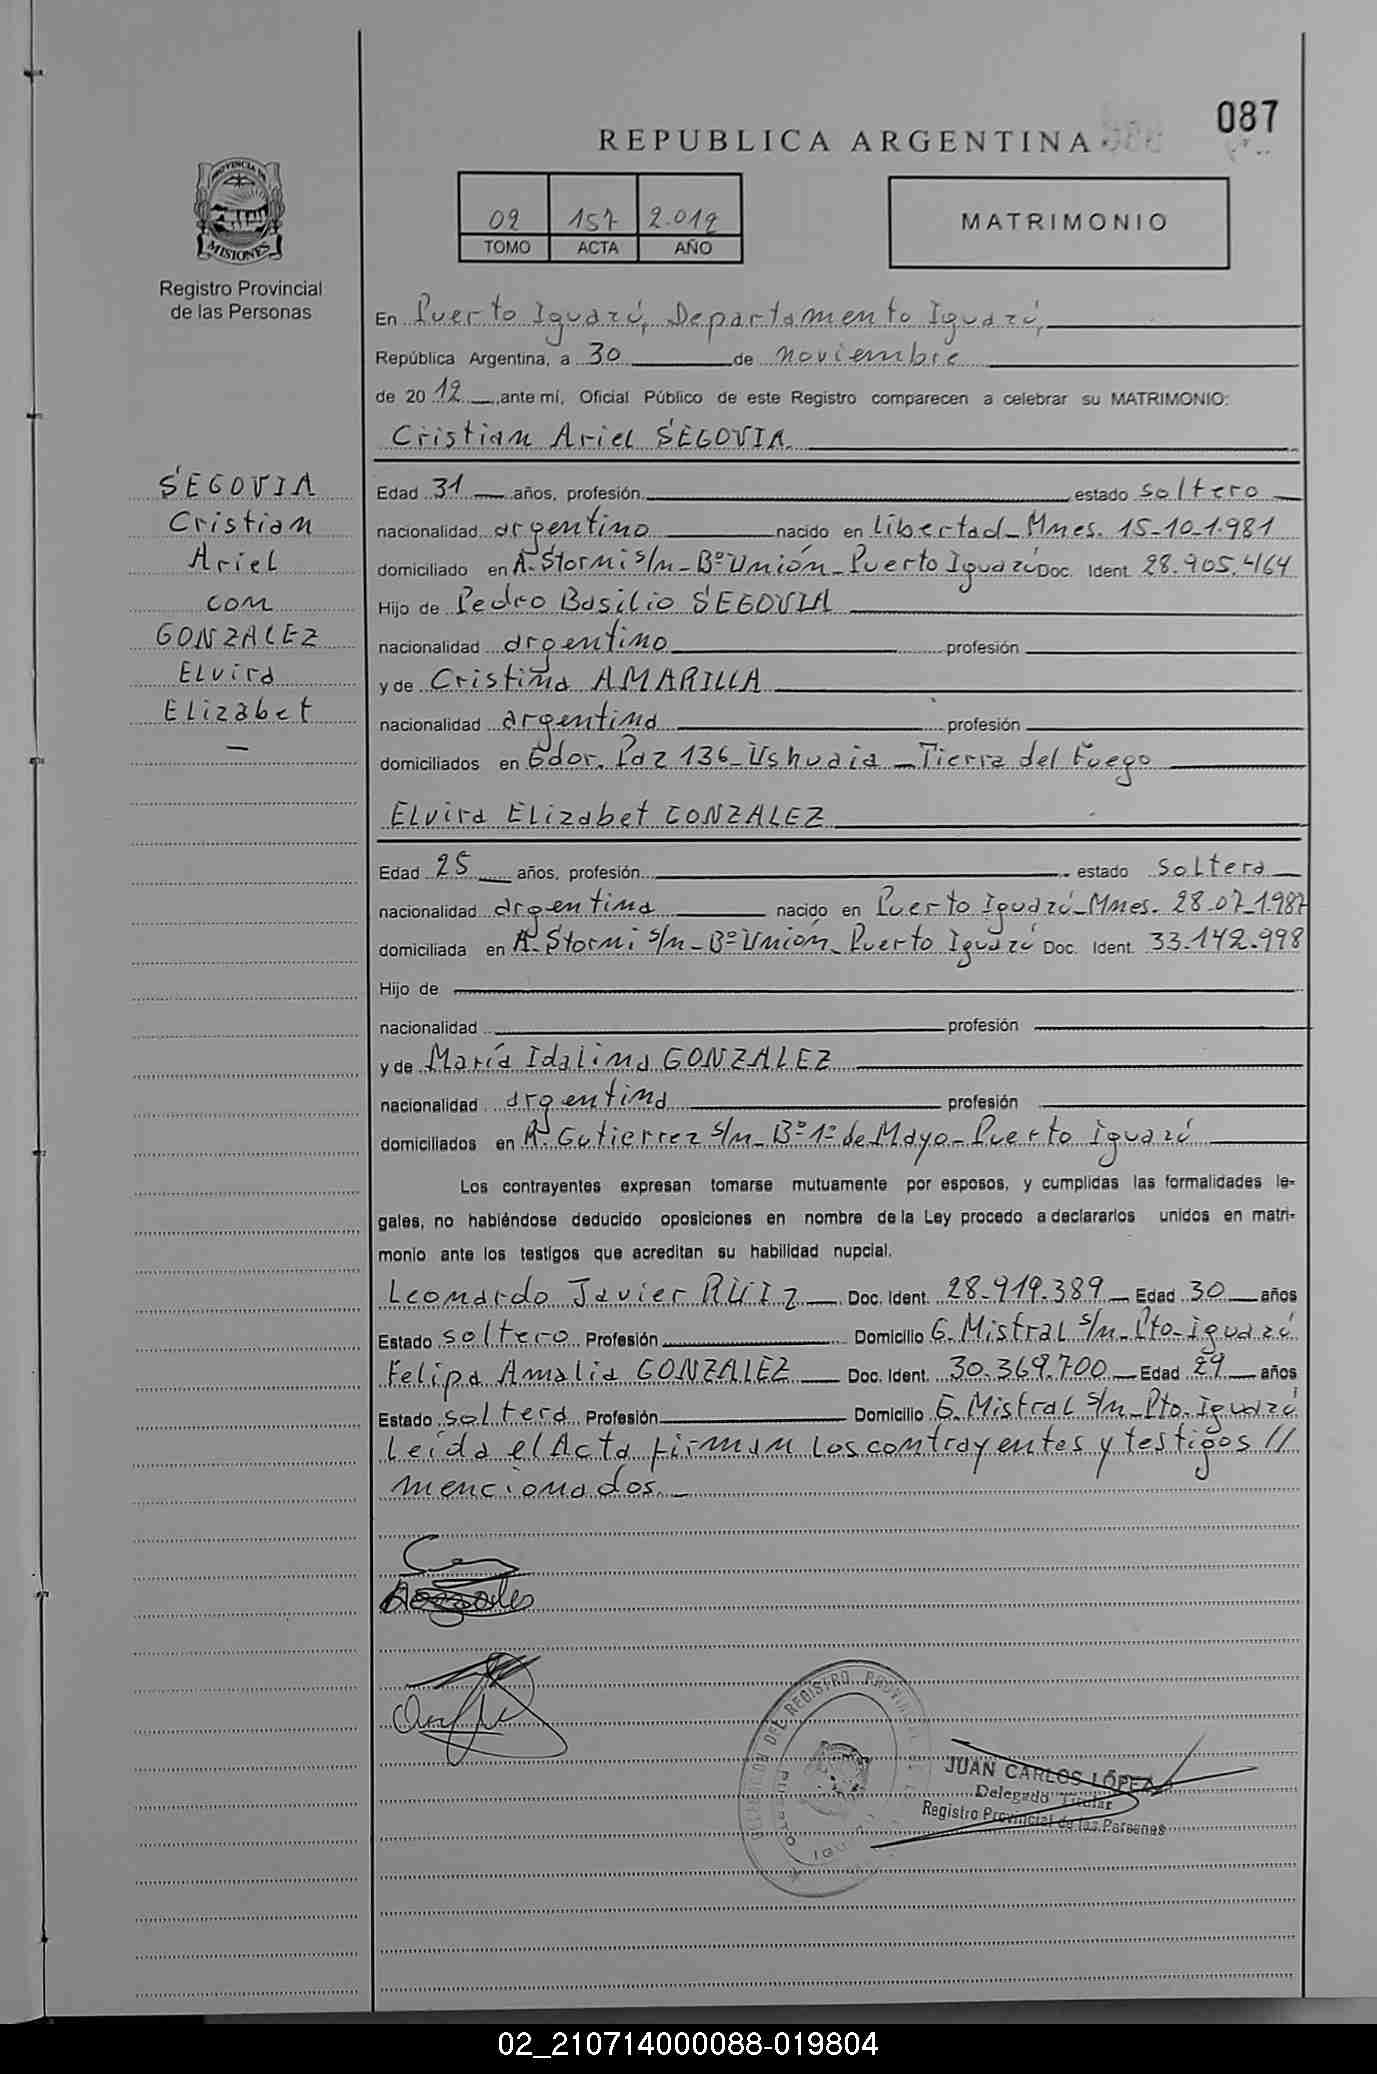 087
REPUBLICA ARGENTINA
02 157 2.012
TOMO ACTA AÑO
MATRIMONIO
PROVINCIA DE
MISIONES
Registro Provincial
de las Personas
En Puerto Iguazú, Departamento Iguazú,
República Argentina, a 30 de noviembre
de 2012, ante mí, Oficial Público de este Registro comparecen a celebrar su MATRIMONIO:
Cristian Ariel SEGOVIA
SEGOVIA
Cristian
Ariel
con
GONZALEZ
Elvira
Elizabet
Edad 31 años, profesión estado soltero
nacionalidad argentino nacido en Libertad - Mnes. 15-10-1.981
domiciliado en A. Storni s/n - Bº Unión - Puerto Iguazú Doc. Ident. 28.905.464
Hijo de Pedro Basilio SEGOVIA
nacionalidad argentino profesión
y de Cristina AMARILLA
nacionalidad argentina profesión
domiciliados en Gdor. Paz 136 - Ushuaia - Tierra del Fuego
Elvira Elizabet GONZALEZ
Edad 25 años, profesión estado soltera
nacionalidad argentina nacido en Puerto Iguazú - Mnes. 28-07-1.987
domiciliada en A. Storni s/n - Bº Unión - Puerto Iguazú Doc. Ident. 33.142.998
Hijo de
nacionalidad profesión
y de María Idalina GONZALEZ
nacionalidad argentina profesión
domiciliados en R. Gutierrez s/n - Bº 1º de Mayo - Puerto Iguazú
Los contrayentes expresan tomarse mutuamente por esposos, y cumplidas las formalidades le-
gales, no habiéndose deducido oposiciones en nombre de la Ley procedo a declararlos unidos en matri-
monio ante los testigos que acreditan su habilidad nupcial.
Leonardo Javier RUIZ Doc. Ident. 28.919.389 Edad 30 años
Estado soltero Profesión Domicilio G. Mistral s/n - Pto. Iguazú
Felipa Amalia GONZALEZ Doc. Ident. 30.369.700 Edad 29 años
Estado soltera Profesión Domicilio G. Mistral s/n - Pto. Iguazú
Leída el Acta firman los contrayentes y testigos //
mencionados. -
DEL REGISTRO PROVINCIAL
PUERTO
JUAN CARLOS LÓPEZ
Delegado Titular
Registro Provincial de las Personas
02_210714000088-019804